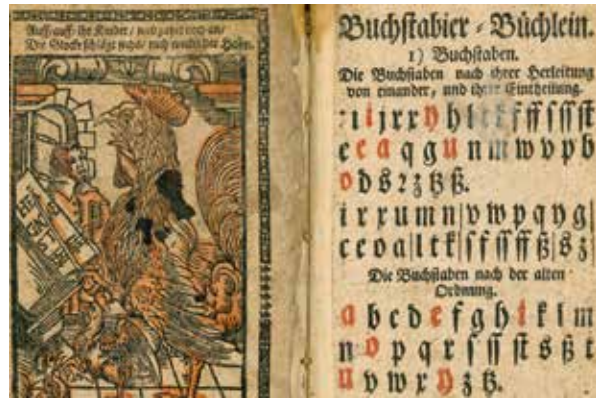 Auff, auff, ihr Kinder/
Die Glocke schlägt sechs/ euch weckt der Hahn.
Buchstabier-Büchlein.
1) Buchstaben.
Die Buchstaben nach ihrer Herleitung
von einander, und ihrer Eintheilung.
i j r x y h l t k f ff ſ ſſ ſt
e c a q g u n m w v p b
o d s z ß.
i r x u m n|v w p q y g|
c e o a|l t k|ſ f ſſ ff ß|s z|
Die Buchstaben nach der alten
Ordnung.
a b c d e f g h i k l m
n o p q r ſ ſſ ſt s ß t
u v w x y z tz.